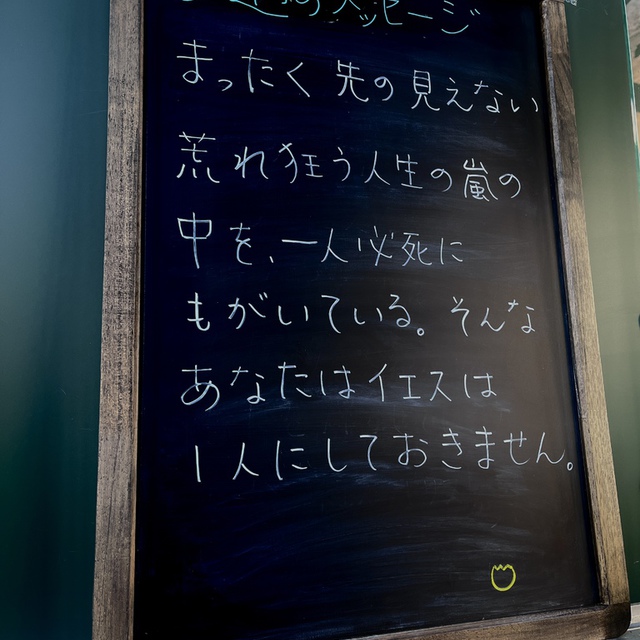 メッセージ
まったく先の見えない
荒れ狂う人生の嵐の
中を、一人必死に
もがいている。そんな
あなたはイエスは
1人にしておきません。